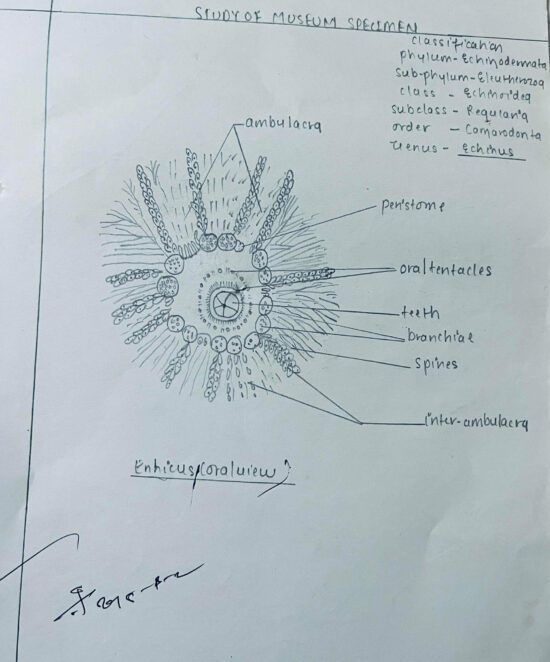 STUDY OF MUSEUM SPECIMEN
classification
phylum - Echinodermata
sub-phylum - Eleutherozoa
class - Echinoidea
subclass - Regularia
order - Camarodonta
Genus - Echinus
ambulacra
peristome
oral tentacles
teeth
branchiae
spines
inter-ambulacra
Enhicus (oral view)